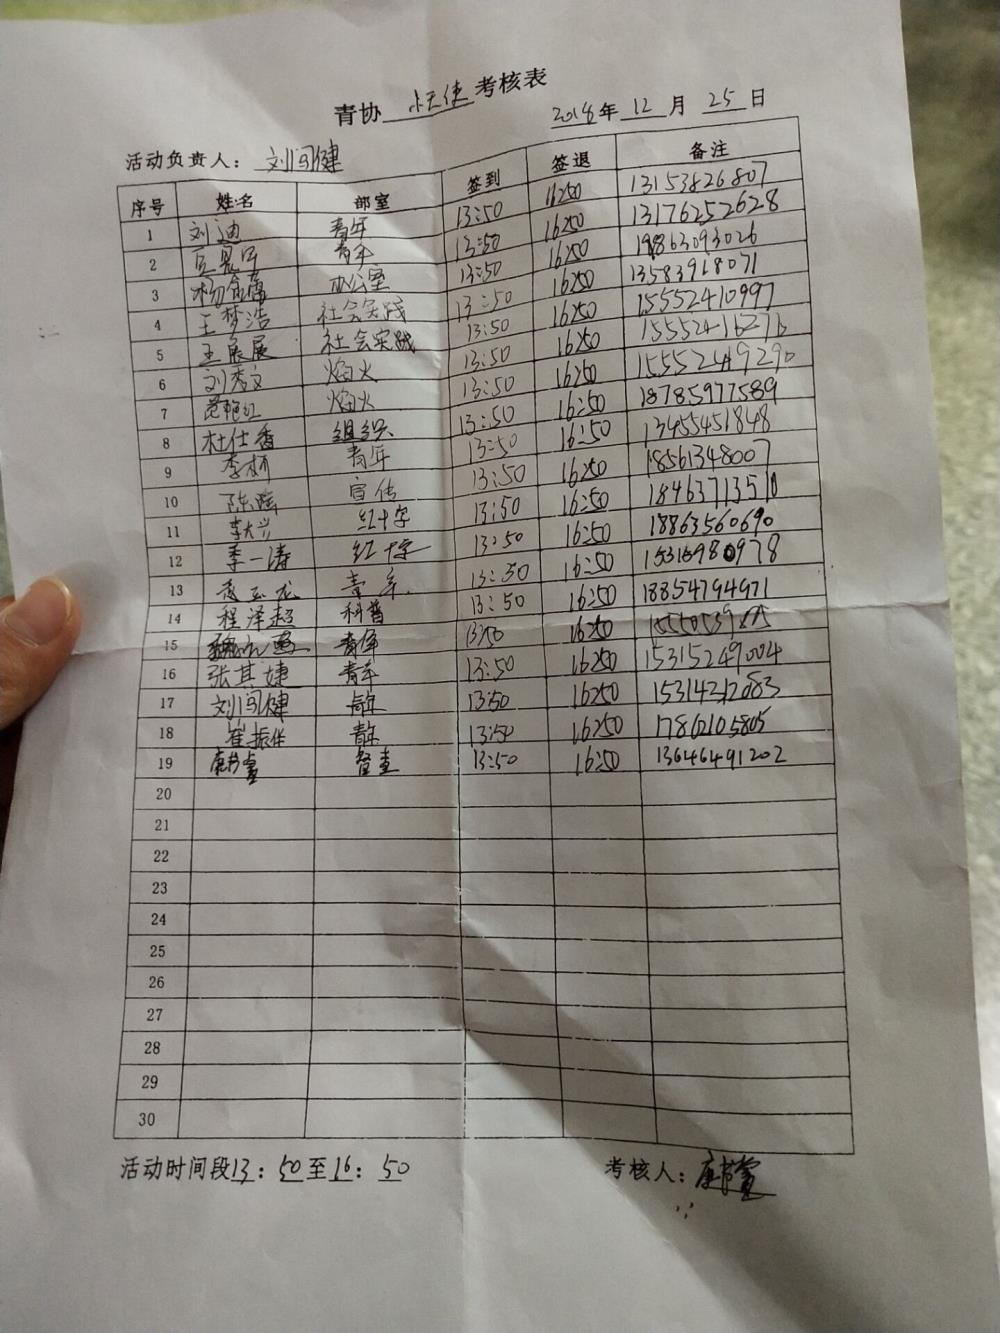 青协 天使 考核表
2018年 12 月 25 日
活动负责人： 刘闯健
序号 姓名 部室 签到 签退 备注
1 刘迪 青年 13:50 16:50 13153826807
2 青年 13:50 16:50 13176252628
3 办公室 13:50 16:50 19863093026
4 王梦浩 社会实践 13:50 16:50 13583918071
5 王展展 社会实践 13:50 16:50 15552410997
6 刘秀文 焰火 13:50 16:50
7 范艳红 焰火 13:50 16:50 15552419290
8 杜仕香 组织 13:50 16:50 18785977589
9 李桥 青年 13:50 16:50 13455451848
10 陈瑶 宣传 13:50 16:50 18561348007
11 李大兴 红十字 13:50 16:50 18463713510
12 季一涛 红十字 13:50 16:50 18863560690
13 青年 13:50 16:50 15316980978
14 程泽超 科普 13:50 16:50 18854794971
15 青年 13:50 16:50
16 张其婕 青年 13:50 16:50 15315249004
17 刘闯健 青年 13:50 16:50 15314212083
18 崔振华 青年 13:50 16:50 17862105805
19 督查 13:50 16:50 13646491202
20
21
22
23
24
25
26
27
28
29
30
活动时间段13：50至16：50
考核人：